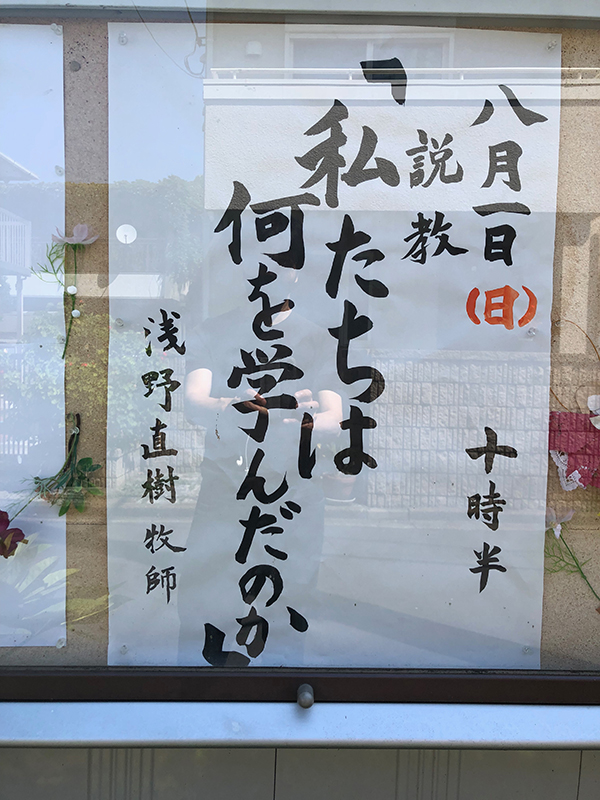 八月一日(日) 十時半
説教
「私たちは
何を学んだのか」
浅野直樹牧師